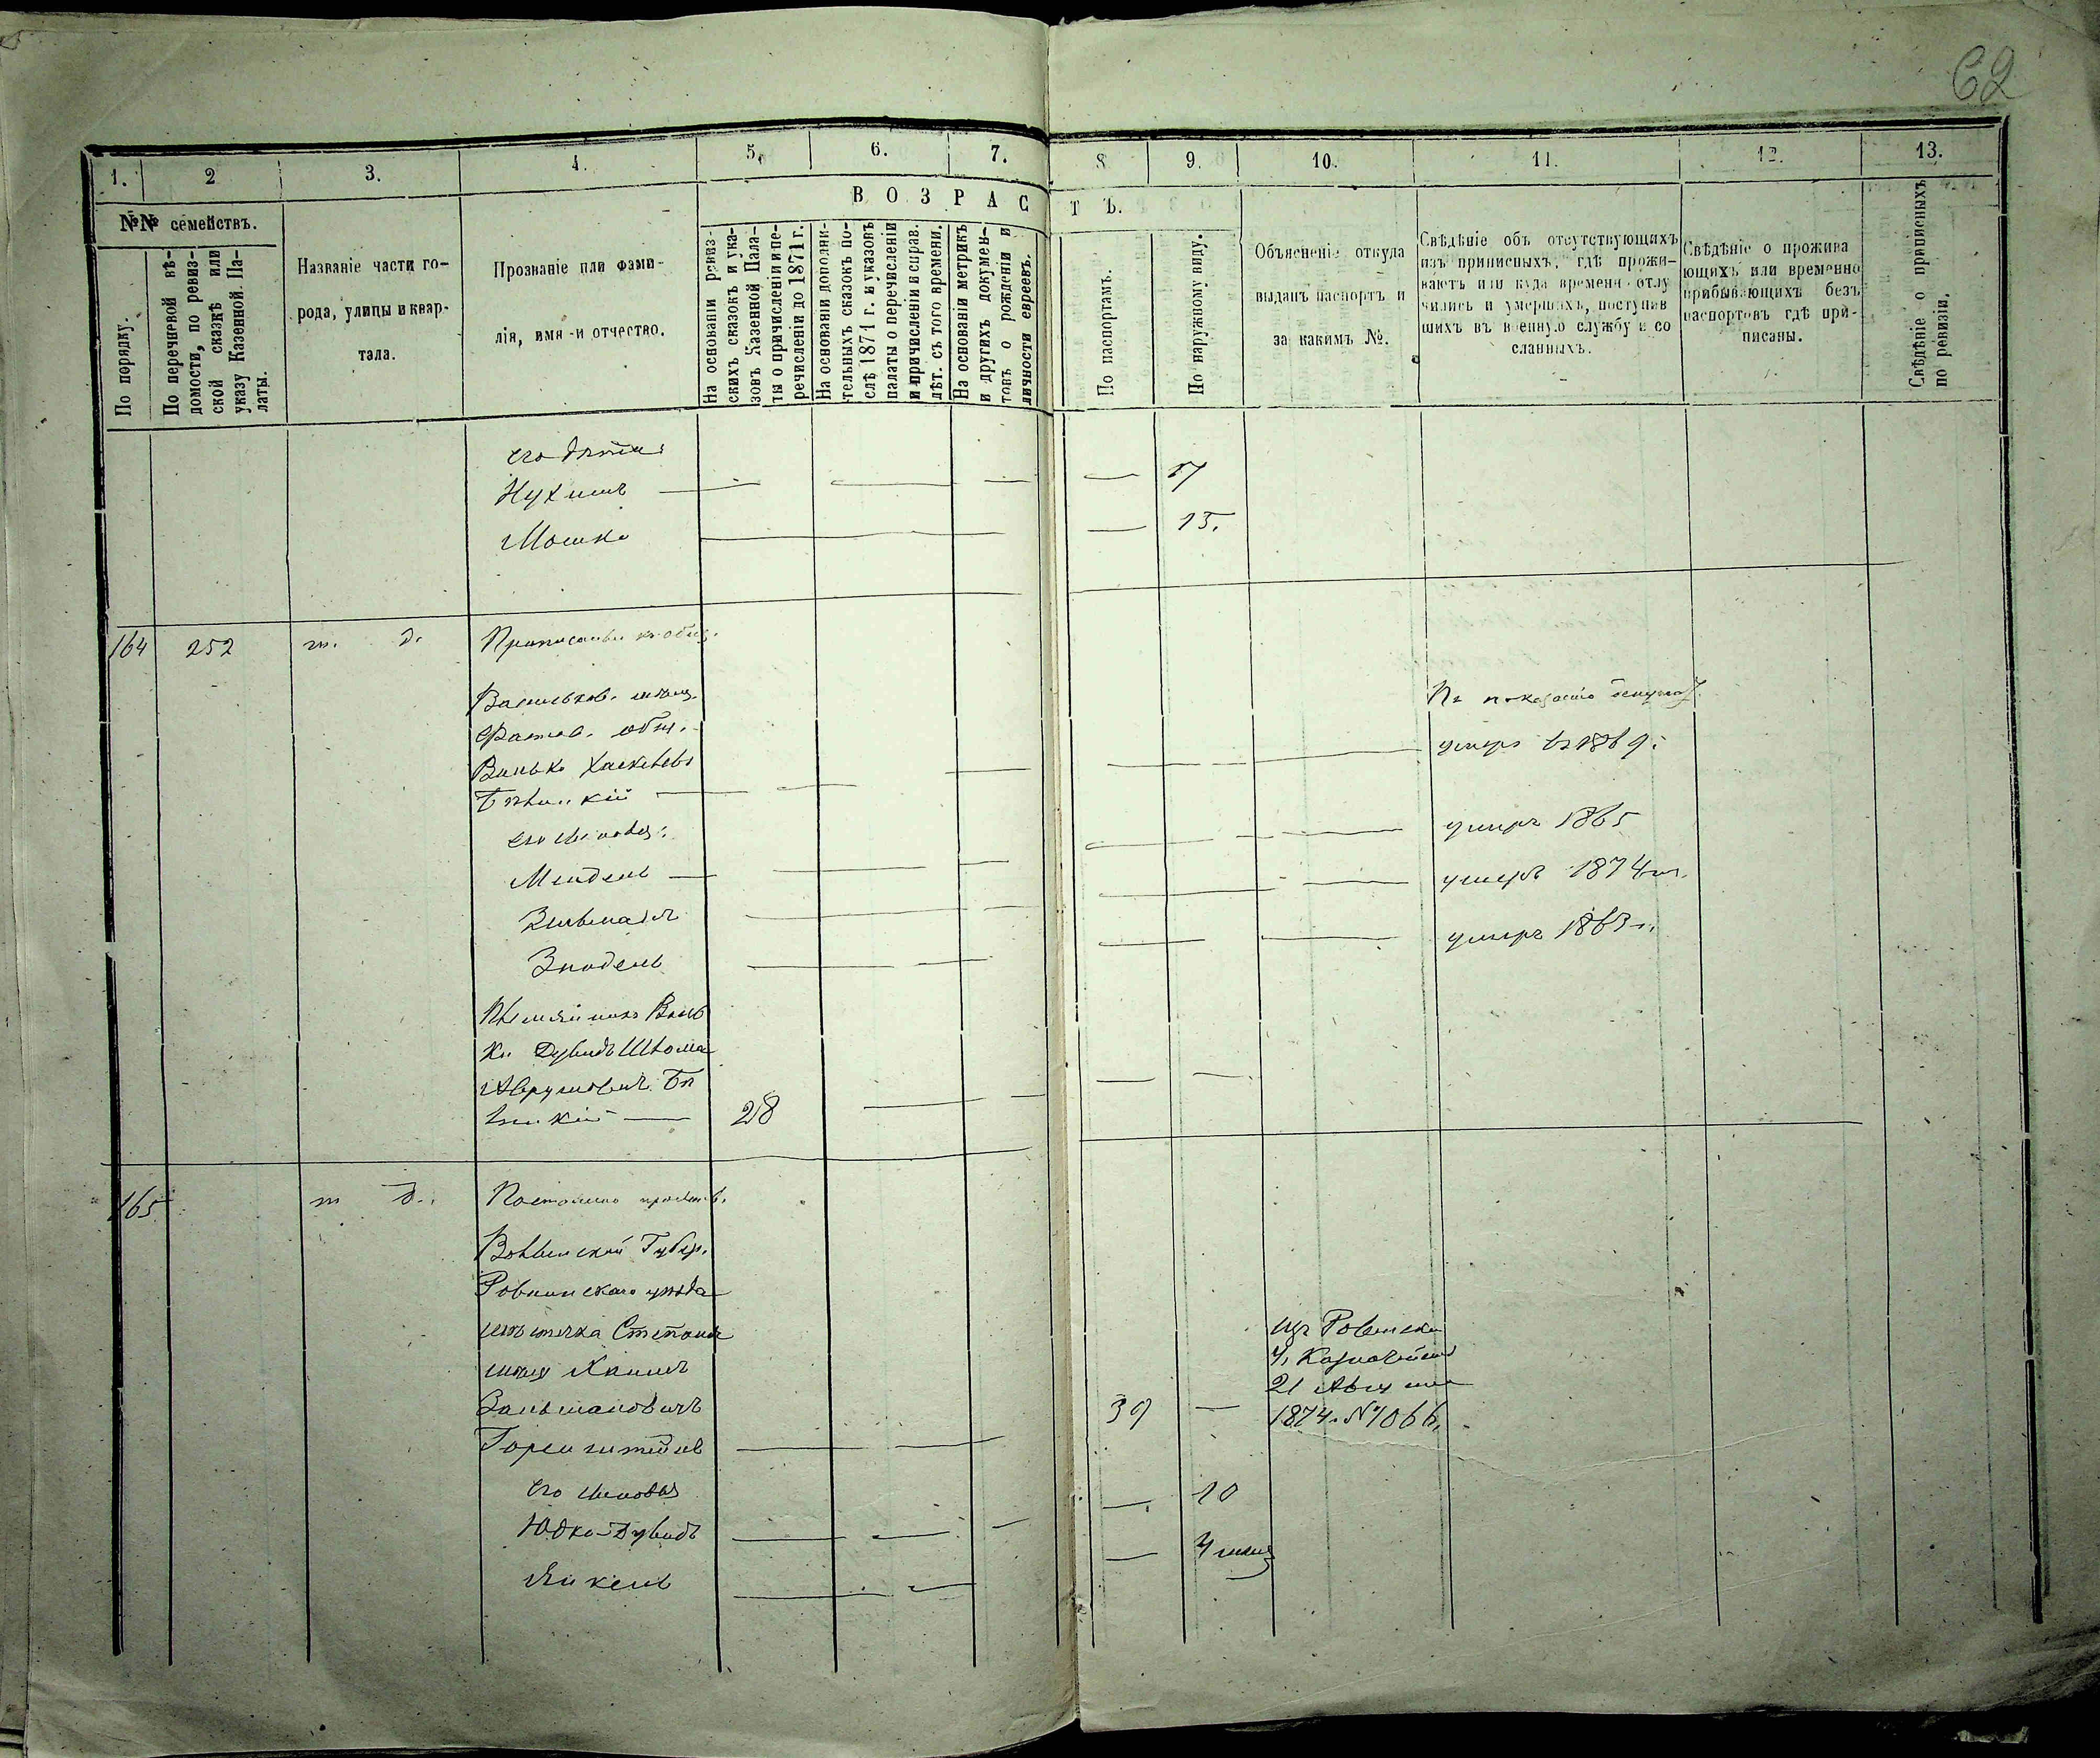 62
1. 2 3. 4. 5. 6. 7. 8 9. 10. 11. 12. 13.
ВОЗРАСТЪ.
№№ семействъ.
По порядку.
По перечневой вѣ-
домости, по ревиз-
ской сказкѣ или
указу Казенной Па-
латы.
Названіе части го-
рода, улицы и квар-
тала.
Прозваніе или фами-
лія, имя и отчество.
На основаніи ревиз-
скихъ сказокъ и ука-
зовъ Казенной Пала-
ты о причисленіи и пе-
речисленіи до 1871 г.
На основаніи дополни-
тельныхъ сказокъ по-
слѣ 1871 г. и указовъ
палаты о перечисленіи
и причисленіи и справ.
лѣт. съ того времени.
На основаніи метрикъ
и другихъ докумен-
товъ о рожденіи и
личности евреевъ.
По паспортамъ.
По наружному виду.
Объясненіе откуда
выданъ паспортъ и
за какимъ №.
Свѣдѣніе объ отсутствующихъ
изъ приписныхъ, гдѣ прожи-
ваютъ или куда времени отлу
чились и умершихъ, поступив
шихъ въ военную службу и со
сланныхъ.
Свѣдѣніе о прожива
ющихъ или временно
прибывающихъ безъ
паспортовъ гдѣ при-
писаны.
Свѣдѣніе о приписныхъ
по ревизіи.
его дѣти:
Нухимъ 17
Мошко 15.
164 252 т. д. Приписаны къ общ.
Васильков. мѣщ.
Фастов. общ.
По показанію
Ванько Хаскелев умеръ въ 1869.
Бѣлицкій
его сыновья:
Мендель умеръ 1865
Зельманъ умеръ 1874 г.
Знодель умеръ 1863 г.
Племянникъ Вань
ки Дувидъ Шлома
Аврумовичъ Бѣ
лицкій 28
165 т д. Постоянно прожив.
Волынской Губер.
Ровенскаго уѣзда
мѣстечка Степаня
мѣщ Хаимъ
Зальмановичъ
Горенштейнъ 39
изъ Ровенска
У. Казначейства
21 Августа
1874. №1066.
его сыновья
Юдко-Дувидъ 10
Янкель 4 мѣсяц